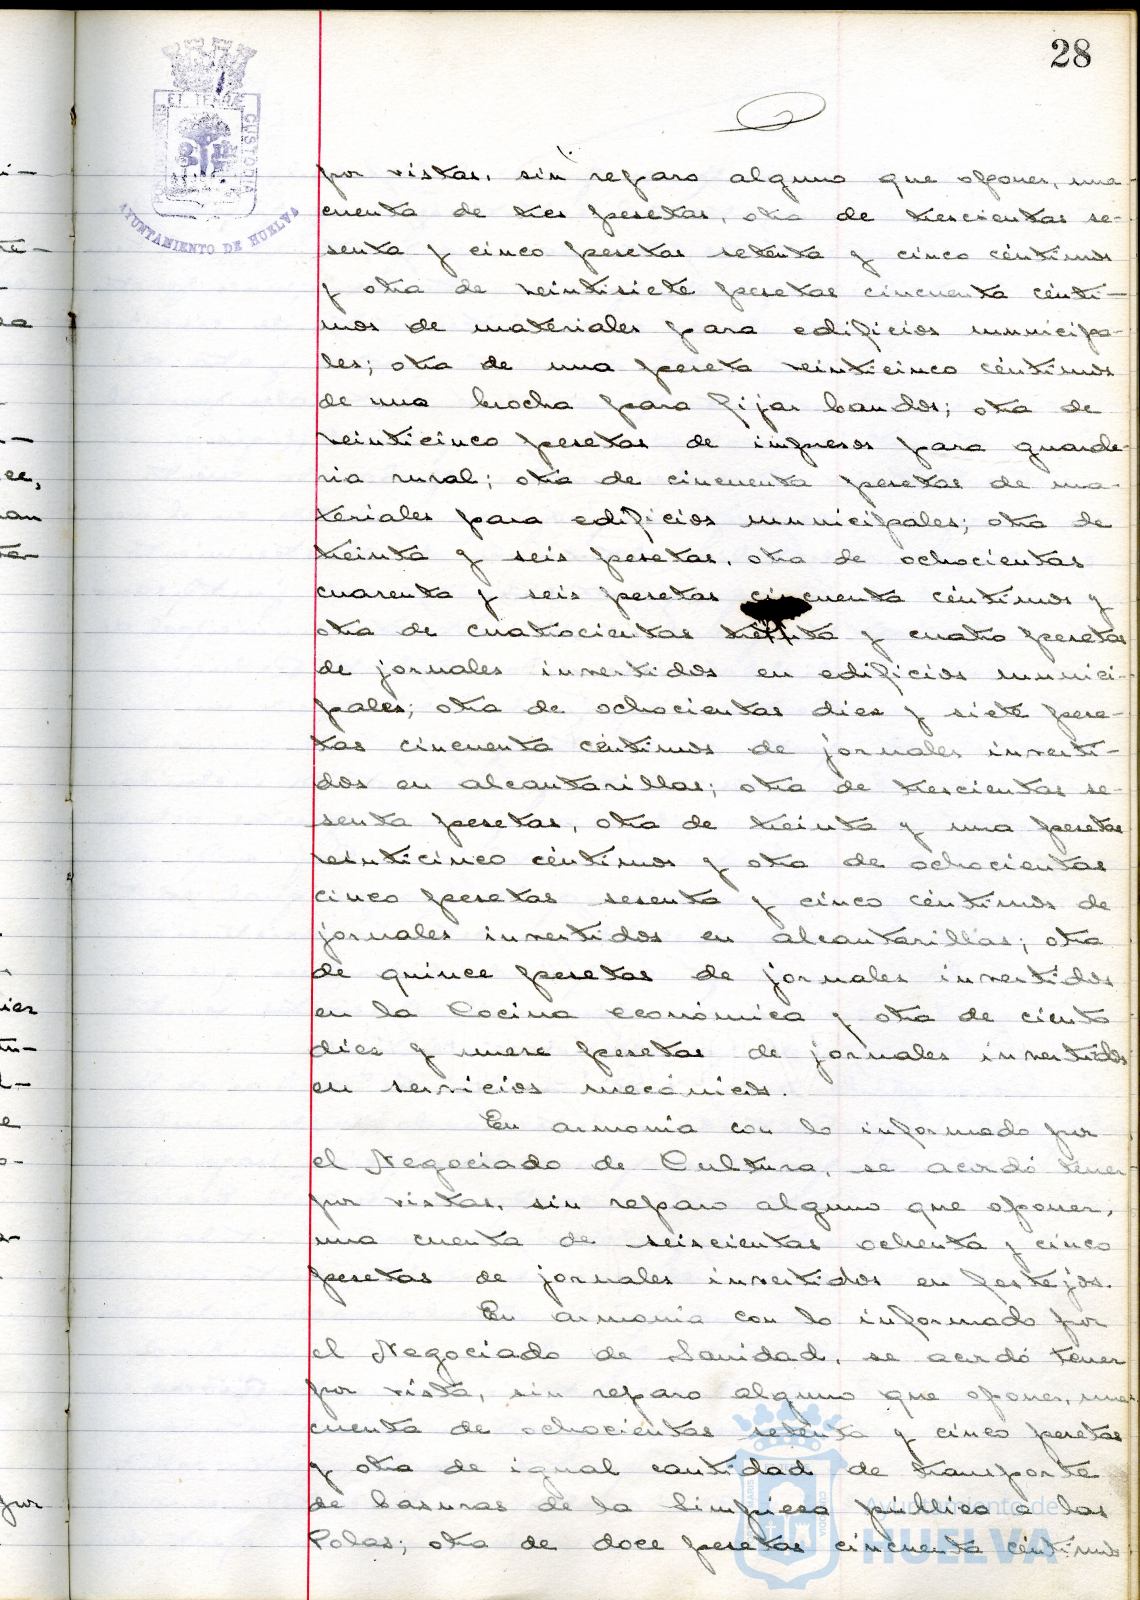 28
EL TERRÆ
CUSTODIA
AYUNTAMIENTO DE HUELVA
por vistas, sin reparo alguno que oponer, una
cuenta de tres pesetas, otra de trescientas se-
senta y cinco pesetas setenta y cinco céntimos
y otra de veintisiete pesetas cincuenta cénti-
mos de materiales para edificios municipa-
les; otra de una peseta veinticinco céntimos
de una brocha para fijar bandos; otra de
veinticinco pesetas de impresos para guarde-
ria rural; otra de cincuenta pesetas de ma-
teriales para edificios municipales; otra de
treinta y seis pesetas, otra de ochocientas
cuarenta y seis pesetas cincuenta céntimos y
otra de cuatrocientas treinta y cuatro pesetas
de jornales invertidos en edificios munici-
pales; otra de ochocientas diez y siete pese-
tas cincuenta céntimos de jornales inverti-
dos en alcantarillas; otra de trescientas se-
senta pesetas, otra de treinta y una pesetas
veinticinco céntimos y otra de ochocientas
cinco pesetas sesenta y cinco céntimos de
jornales invertidos en alcantarillas; otra
de quince pesetas de jornales invertidos
en la Cocina económica y otra de ciento
diez y nueve pesetas de jornales invertidos
en servicios mecánicos.
En armonía con lo informado por
el Negociado de Cultura, se acordó tener
por vistas, sin reparo alguno que oponer,
una cuenta de seiscientas ochenta y cinco
pesetas de jornales invertidos en festejos.
En armonía con lo informado por
el Negociado de Sanidad, se acordó tener
por vista, sin reparo alguno que oponer, una
cuenta de ochocientas setenta y cinco pesetas
y otra de igual cantidad de transporte
de basuras de la limpieza pública a las
Polas; otra de doce pesetas cincuenta céntimos
Ayuntamiento de
HUELVA